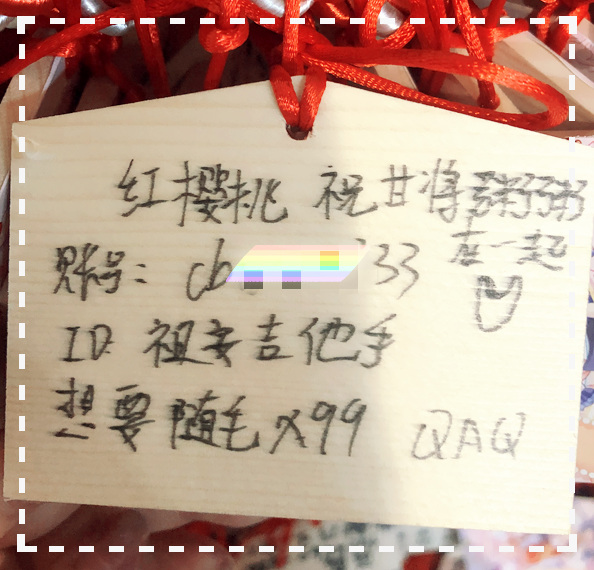 红樱桃 祝甘将粥粥
在一起
账号: cb 33
ID 祖安吉他手
想要随毛x99 QAQ